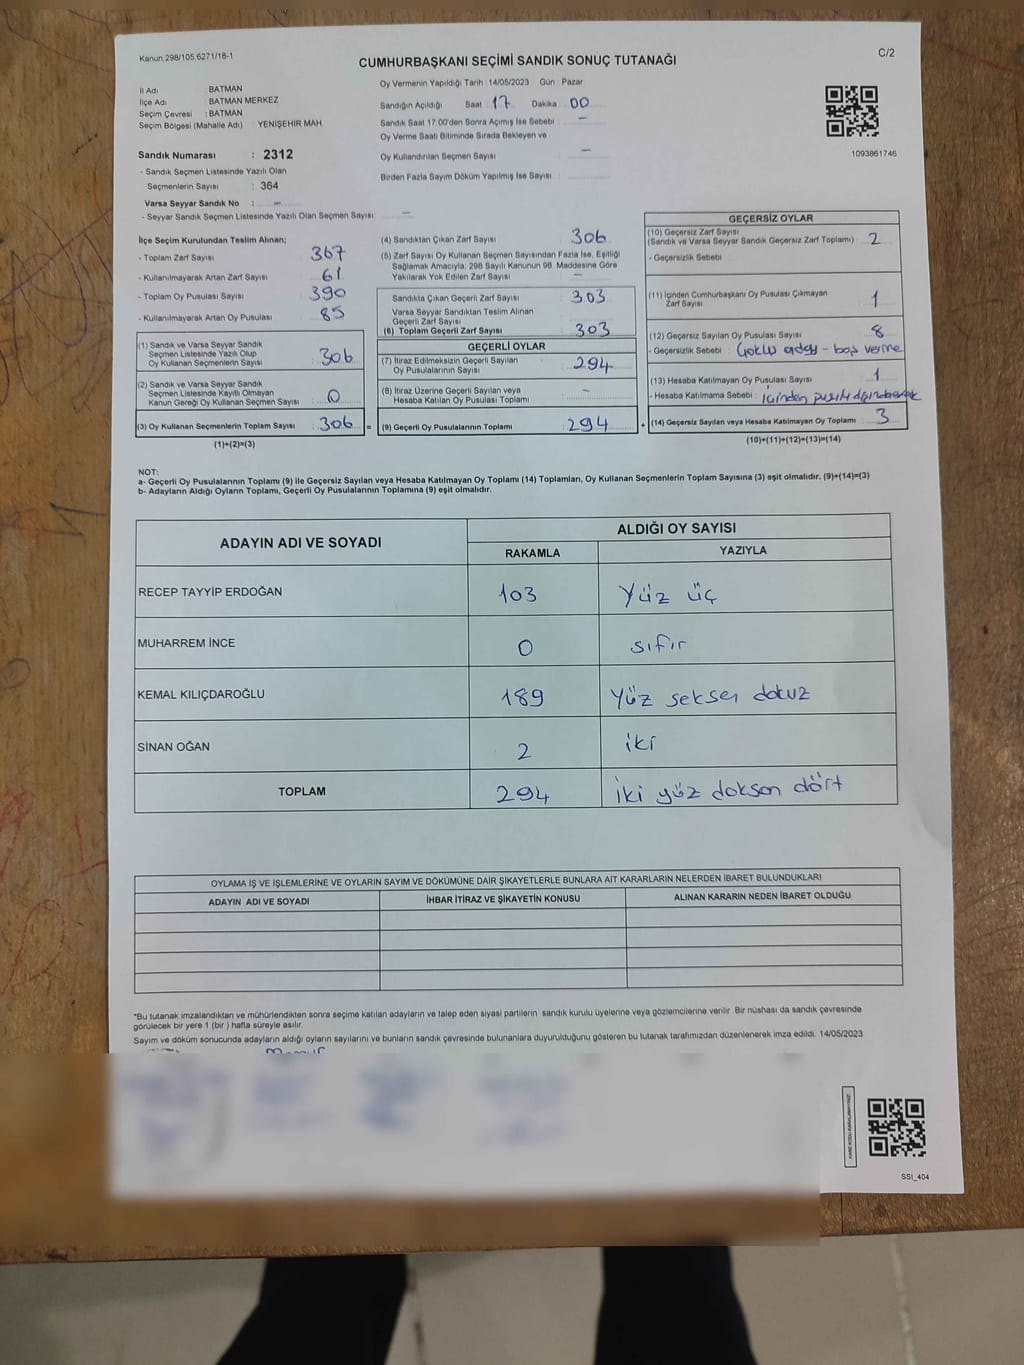 Kanun:298/105,6271/18-1
CUMHURBAŞKANI SEÇİMİ SANDIK SONUÇ TUTANAĞI
C/2
İl Adı : BATMAN
İlçe Adı : BATMAN MERKEZ
Seçim Çevresi : BATMAN
Seçim Bölgesi (Mahalle Adı) : YENİŞEHİR MAH
Sandık Numarası : 2312
- Sandık Seçmen Listesinde Yazılı Olan
Seçmenlerin Sayısı : 364
Varsa Seyyar Sandık No : -
- Seyyar Sandık Seçmen Listesinde Yazılı Olan Seçmen Sayısı: -
Oy Vermenin Yapıldığı Tarih :14/05/2023 Gün : Pazar
Sandığın Açıldığı Saat : 17 Dakika : 00
Sandık Saat 17:00'den Sonra Açılmış İse Sebebi : -
Oy Verme Saati Bitiminde Sırada Bekleyen ve
Oy Kullandırılan Seçmen Sayısı : -
Birden Fazla Sayım Döküm Yapılmış İse Sayısı :
1093861746
İlçe Seçim Kurulundan Teslim Alınan;
- Toplam Zarf Sayısı : 367
- Kullanılmayarak Artan Zarf Sayısı : 61
- Toplam Oy Pusulası Sayısı : 390
- Kullanılmayarak Artan Oy Pusulası : 85
(1) Sandık ve Varsa Seyyar Sandık
Seçmen Listesinde Yazılı Olup
Oy Kullanan Seçmenlerin Sayısı : 306
(2) Sandık ve Varsa Seyyar Sandık
Seçmen Listesinde Kayıtlı Olmayan
Kanun Gereği Oy Kullanan Seçmen Sayısı : 0
(3) Oy Kullanan Seçmenlerin Toplam Sayısı : 306 =
(1)+(2)=(3)
(4) Sandıktan Çıkan Zarf Sayısı : 306
(5) Zarf Sayısı Oy Kullanan Seçmen Sayısından Fazla İse, Eşitliği
Sağlamak Amacıyla, 298 Sayılı Kanunun 98. Maddesine Göre
Yakılarak Yok Edilen Zarf Sayısı : -
Sandıkta Çıkan Geçerli Zarf Sayısı : 303
Varsa Seyyar Sandıktan Teslim Alınan
Geçerli Zarf Sayısı :
(6) Toplam Geçerli Zarf Sayısı : 303
GEÇERLİ OYLAR
(7) İtiraz Edilmeksizin Geçerli Sayılan
Oy Pusulalarının Sayısı : 294
(8) İtiraz Üzerine Geçerli Sayılan veya
Hesaba Katılan Oy Pusulası Toplamı : -
(9) Geçerli Oy Pusulalarının Toplamı : 294 +
GEÇERSİZ OYLAR
(10) Geçersiz Zarf Sayısı
(Sandık ve Varsa Seyyar Sandık Geçersiz Zarf Toplamı) : 2
- Geçersizlik Sebebi :
(11) İçinden Cumhurbaşkanı Oy Pusulası Çıkmayan
Zarf Sayısı : 1
(12) Geçersiz Sayılan Oy Pusulası Sayısı : 8
- Geçersizlik Sebebi : - boş verme
(13) Hesaba Katılmayan Oy Pusulası Sayısı : 1
- Hesaba Katılmama Sebebi : içinden
(14) Geçersiz Sayılan veya Hesaba Katılmayan Oy Toplamı : 3
(10)+(11)+(12)+(13)=(14)
NOT:
a- Geçerli Oy Pusulalarının Toplamı (9) ile Geçersiz Sayılan veya Hesaba Katılmayan Oy Toplamı (14) Toplamları, Oy Kullanan Seçmenlerin Toplam Sayısına (3) eşit olmalıdır. (9)+(14)=(3)
b- Adayların Aldığı Oyların Toplamı, Geçerli Oy Pusulalarının Toplamına (9) eşit olmalıdır.
ADAYIN ADI VE SOYADI
ALDIĞI OY SAYISI
RAKAMLA YAZIYLA
RECEP TAYYİP ERDOĞAN 103 Yüz üç
MUHARREM İNCE 0 sıfır
KEMAL KILIÇDAROĞLU 189 Yüz seksen dokuz
SİNAN OĞAN 2 iki
TOPLAM 294 iki yüz doksan dört
OYLAMA İŞ VE İŞLEMLERİNE VE OYLARIN SAYIM VE DÖKÜMÜNE DAİR ŞİKAYETLERLE BUNLARA AİT KARARLARIN NELERDEN İBARET BULUNDUKLARI
ADAYIN ADI VE SOYADI İHBAR İTİRAZ VE ŞİKAYETİN KONUSU ALINAN KARARIN NEDEN İBARET OLDUĞU
*Bu tutanak imzalandıktan ve mühürlendikten sonra seçime katılan adayların ve talep eden siyasi partilerin sandık kurulu üyelerine veya gözlemcilerine verilir. Bir nüshası da sandık çevresinde
görülecek bir yere 1 (bir ) hafta süreyle asılır.
Sayım ve döküm sonucunda adayların aldığı oyların sayılarını ve bunların sandık çevresinde bulunanlara duyurulduğunu gösteren bu tutanak tarafımızdan düzenlenerek imza edildi. 14/05/2023
SSI_404